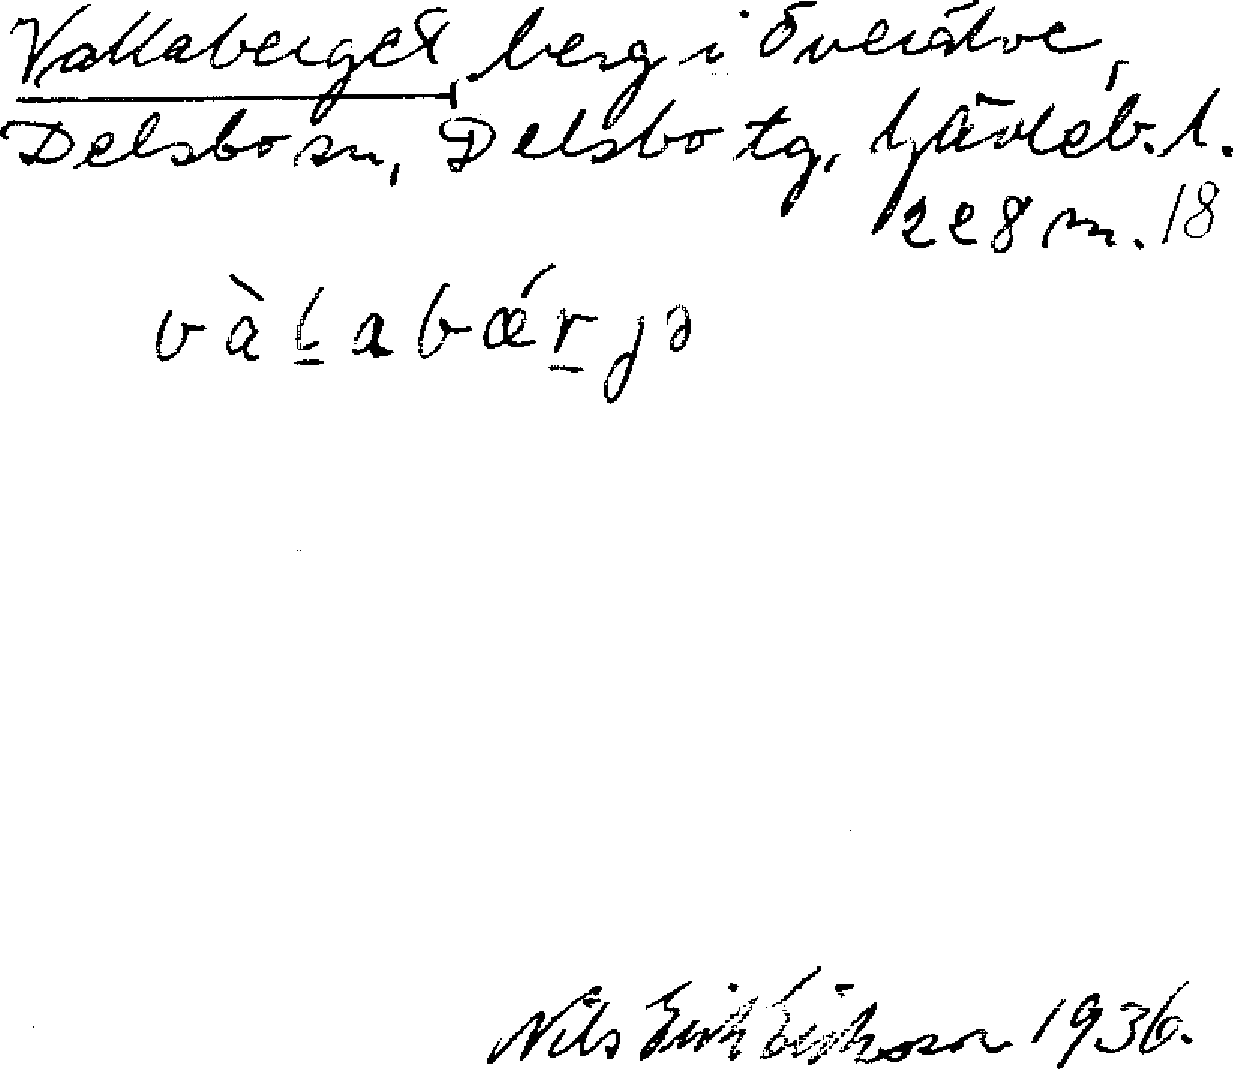 Vallaberget berg i Överälve,
Delsbo sn, Delsbo tg, Gävleb. l.
228 m. 18
vàḻabǽṟjə
Nils Erik Eriksson 1936.